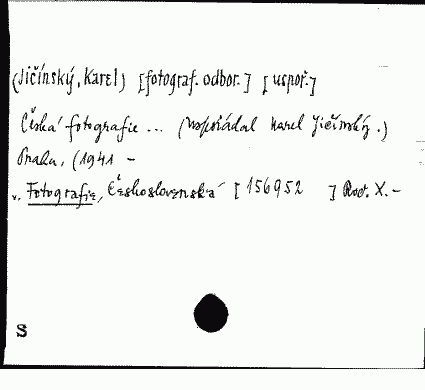 (Jičínský, Karel) [fotograf. odbor.] [uspoř.]
Česká fotografie ... (uspořádal Karel Jičínský.)
Praha, (1941 –
v. Fotografie, Československá [156952 ] Roč. X. –
S